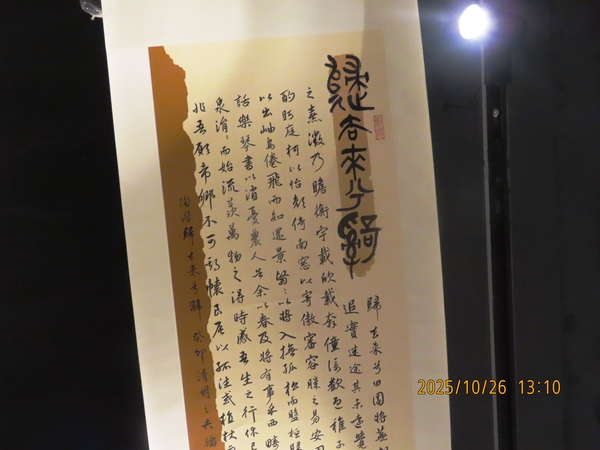 歸去來兮辭
歸去来兮田園將蕪
追實迷途其未遠覺
之熹微乃瞻衡宇載欣載奔僮僕歡迎稚子
酌眄庭柯以怡顏倚南窗以寄傲審容膝之易安
以出岫鳥倦飛而知還景翳々以將入撫孤松而盤桓
話樂琴書以消憂農人告余以春及將有事乎西疇
泉涓々而始流羨萬物之得時感吾生之行休
非吾願帝鄉不可期懷良辰以孤往或植杖而
陶潛歸去来兮辭 癸卯清明
2025/10/26 13:10